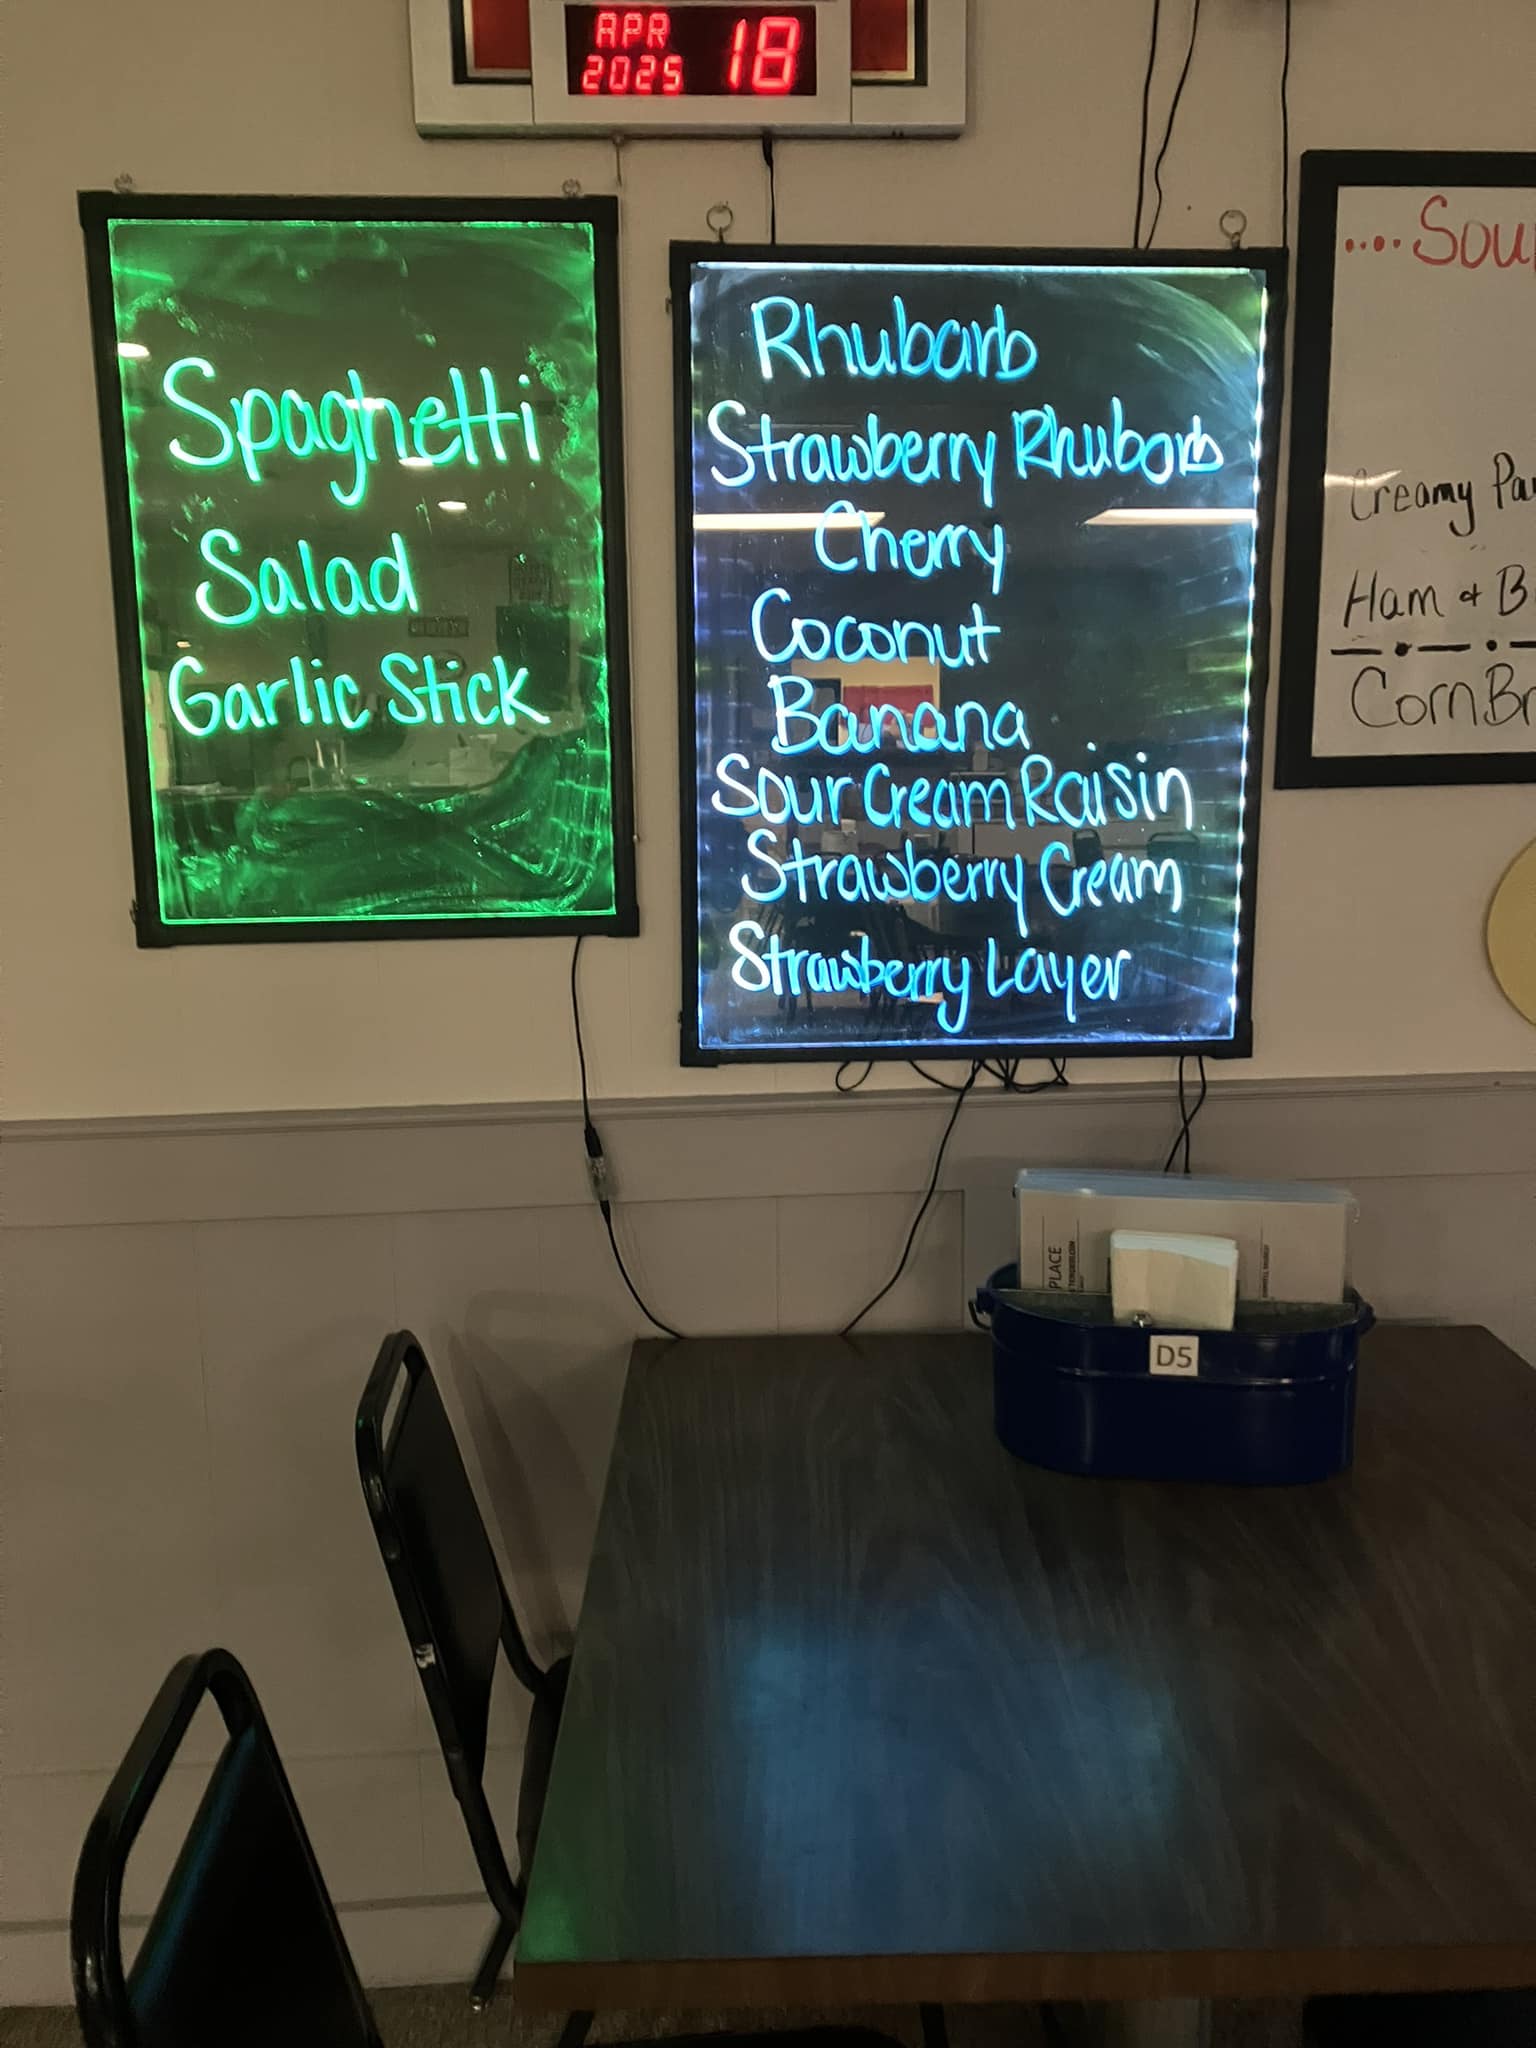 APR
2025
18
Spaghetti
Salad
Garlic Stick
Rhubarb
Strawberry Rhubarb
Cherry
Coconut
Banana
Sour Cream Raisin
Strawberry Cream
Strawberry Layer
....Sou
Creamy
Ham & B
Corn Br
PLACE
D5